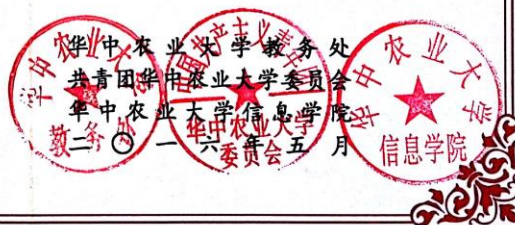 华中农业大学教务处
共青团华中农业大学委员会
华中农业大学信息学院
二〇一六年五月
华中农业大学
教务处
中国共产主义青年团
华中农业大学
委员会
华中农业大学
信息学院